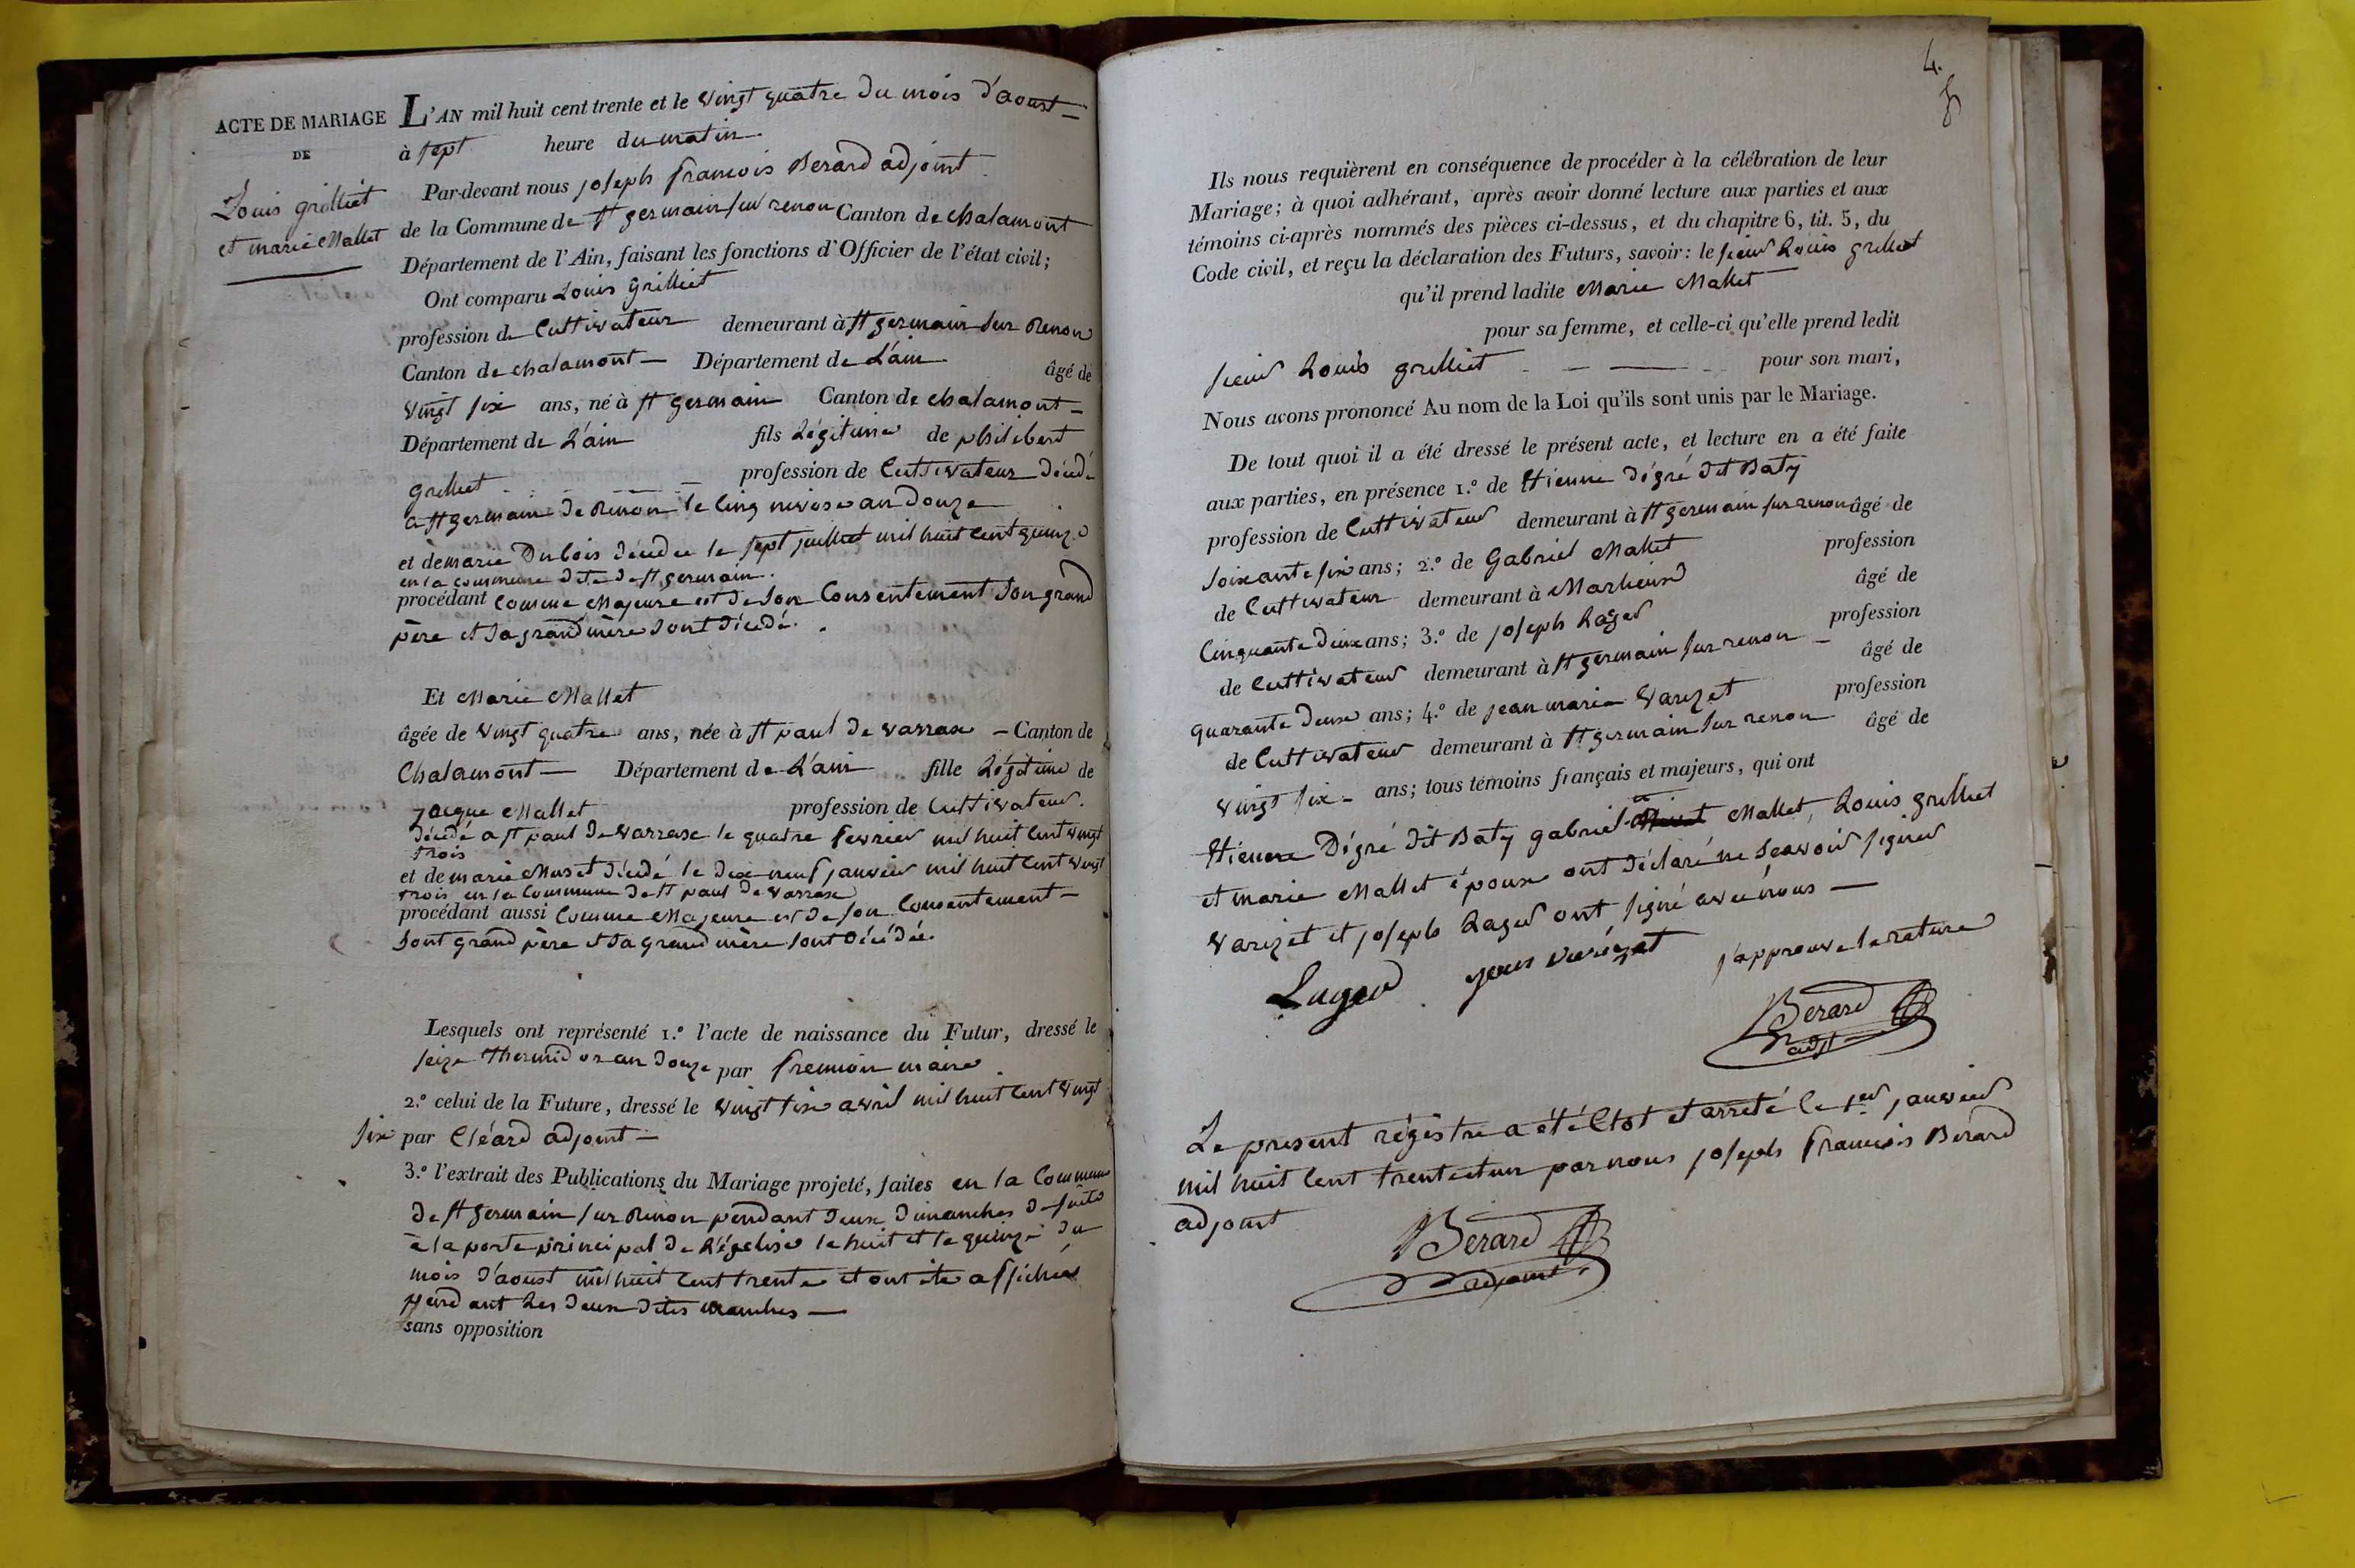 ACTE DE MARIAGE
DE
Louis grilliet
et marie Mallet
L'AN mil huit cent trente et le vingt quatre du mois d'aoust
à sept heure du matin.
Par-devant nous joseph francois Berard adjoint
de la Commune de st germain sur renon Canton de chalamont
Département de l'Ain, faisant les fonctions d'Officier de l'état civil;
Ont comparu Louis Grilliet
profession de Cultivateur demeurant à st germain sur Renon
Canton de chalamont Département de L'ain âgé de
vingt six ans, né à st germain Canton de chalamont
Département de L'ain fils Légitime de philibert
Grilliet profession de Cultivateur décédé
a st germain de Renon le cinq nivose an douze
et de marie Dubois décédée le sept juillet mil huit cent quinze
en la commune dite de st germain.
procédant comme Majeure et de son Consentement son grand
père et sa grand mère sont décédé.
Et Marie Mallet
âgée de vingt quatre ans, née à st paul de varrax Canton de
Chalamont Département de L'ain fille Légitime de
jacque Mallet profession de Cultivateur.
décédé a st paul de varrax le quatre fevrier mil huit cent vingt
trois
et de marie Muset décédé le dix neuf janvier mil huit cent vingt
trois en la Commune de st paul de varrax
procédant aussi Comme Majeure et de son Consentement
sont grand père et sa grand mère sont décédée.
Lesquels ont représenté 1.º l'acte de naissance du Futur, dressé le
seize thermidor an douze par fremion maire
2.º celui de la Future, dressé le vingt six avril mil huit cent vingt
six par Cléard adjoint
3.º l'extrait des Publications du Mariage projeté, faites en la Commune
de st germain sur Renon pendant deux dimanches de suite
a la porte principal de L'égelise le huit et le quinze du
mois d'aoust mil huit cent trente et ont été affichée
pendant Les deux dites
sans opposition
4.
Ils nous requièrent en conséquence de procéder à la célébration de leur
Mariage; à quoi adhérant, après avoir donné lecture aux parties et aux
témoins ci-après nommés des pièces ci-dessus, et du chapitre 6, tit. 5, du
Code civil, et reçu la déclaration des Futurs, savoir: le sieur Louis grilliet
qu'il prend ladite Marie Mallet
pour sa femme, et celle-ci qu'elle prend ledit
sieur Louis grilliet pour son mari,
Nous avons prononcé Au nom de la Loi qu'ils sont unis par le Mariage.
De tout quoi il a été dressé le présent acte, et lecture en a été faite
aux parties, en présence 1.º de Etienne Dégré dit Baty
profession de Cultivateur demeurant à st germain sur renon âgé de
soixante six ans; 2.º de Gabriel Mallet profession
de Cultivateur demeurant à Marlieux âgé de
Cinquante deux ans; 3.º de joseph Lager profession
de Cultivateur demeurant à st germain sur renon âgé de
quarante deux ans; 4.º de jean marie Varizet profession
de Cultivateur demeurant à st germain sur renon âgé de
vingt six ans; tous témoins français et majeurs, qui ont
Etienne Dégré dit Baty gabriel Mallet, Louis grilliet
et marie Mallet épouse ont déclaré ne scavoir signer
Varizet et joseph Lager ont signé avec nous
Lager jean varizet japprouve la rature
Berard
adjt
Le present régistre a été Clot et arreté le 1er janvier
mil huit cent trentectun par nous joseph francois Bérard
adjoint
Berard
adjoint